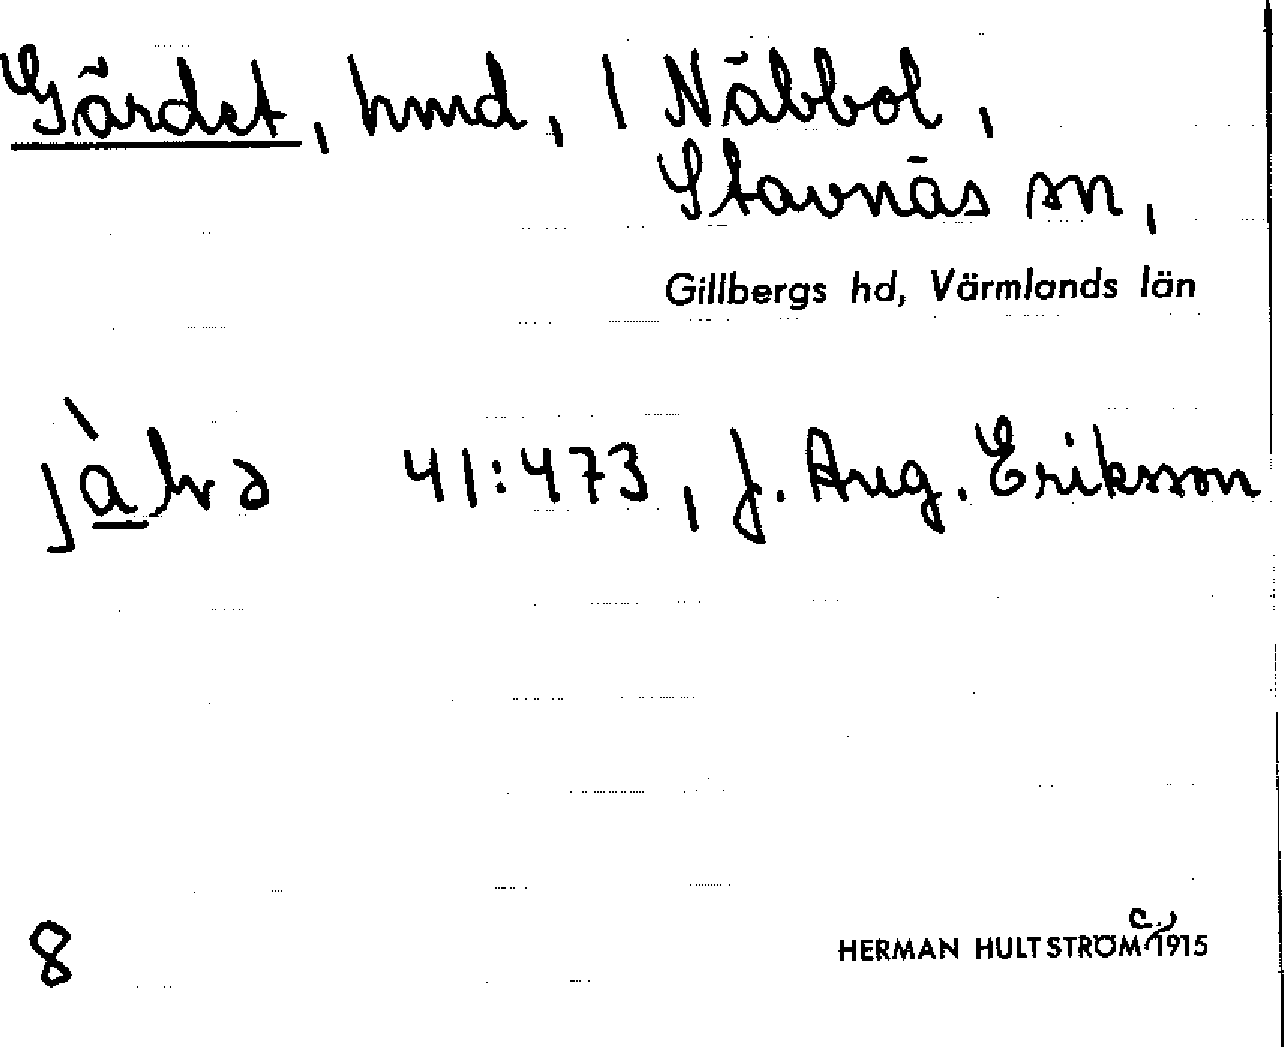 Gärdet, hmd, 1 Näbbol,
Stavnäs sn,
Gillbergs hd, Värmlands län
41:473, J. Aug. Eriksson
8
HERMAN HULTSTRÖM c. 1915